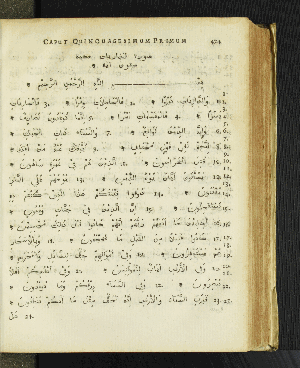 CAPUT QUINQUAGESIMUM PRIMUM
سورة الذاريات مكية
ستون اية *
بِسْمِ اللَّهِ الرَّحْمَنِ الرَّحِيمِ
وَالذَّارِيَاتِ ذَرْوًا * 2. فَالْحَامِلَاتِ وِقْرًا * 3. فَالْجَارِيَاتِ
يُسْرًا * 4. فَالْمُقَسِّمَاتِ أَمْرًا * 5. إِنَّمَا تُوعَدُونَ لَصَادِقٌ *
6. وَإِنَّ الدِّينَ لَوَاقِعٌ * 7. وَالسَّمَاءِ ذَاتِ الْحُبُكِ
* 8. إِنَّكُمْ لَفِي قَوْلٍ مُخْتَلِفٍ * 9. يُؤْفَكُ عَنْهُ مَنْ أُفِكَ *
10. قُتِلَ الْخَرَّاصُونَ * 11. الَّذِينَ هُمْ فِي غَمْرَةٍ سَاهُونَ *
12. يَسْئَلُونَ أَيَّانَ يَوْمُ الدِّينِ * 13. يَوْمَ هُمْ عَلَى النَّارِ
يُفْتَنُونَ * 14. ذُوقُوا فِتْنَتَكُمْ هَذَا الَّذِي كُنْتُمْ بِهِ
تَسْتَعْجِلُونَ * 15. إِنَّ الْمُتَّقِينَ فِي جَنَّاتٍ وَعُيُونٍ *
16. آخِذِينَ مَا آتَاهُمْ رَبُّهُمْ إِنَّهُمْ كَانُوا قَبْلَ ذَلِكَ مُحْسِنِينَ *
17. كَانُوا قَلِيلًا مِنَ اللَّيْلِ مَا يَهْجَعُونَ * 18. وَبِالْأَسْحَارِ
هُمْ يَسْتَغْفِرُونَ * 19. وَفِي أَمْوَالِهِمْ حَقٌّ لِلسَّائِلِ وَالْمَحْرُومِ *
20. وَفِي الْأَرْضِ آيَاتٌ لِلْمُوقِنِينَ * 21. وَفِي أَنْفُسِكُمْ أَفَلَا
تُبْصِرُونَ * 22. وَفِي السَّمَاءِ رِزْقُكُمْ وَمَا تُوعَدُونَ *
23. فَوَرَبِّ السَّمَاءِ وَالْأَرْضِ إِنَّهُ لَحَقٌّ مِثْلَ مَا أَنَّكُمْ تَنْطِقُونَ *
24. هَلْ